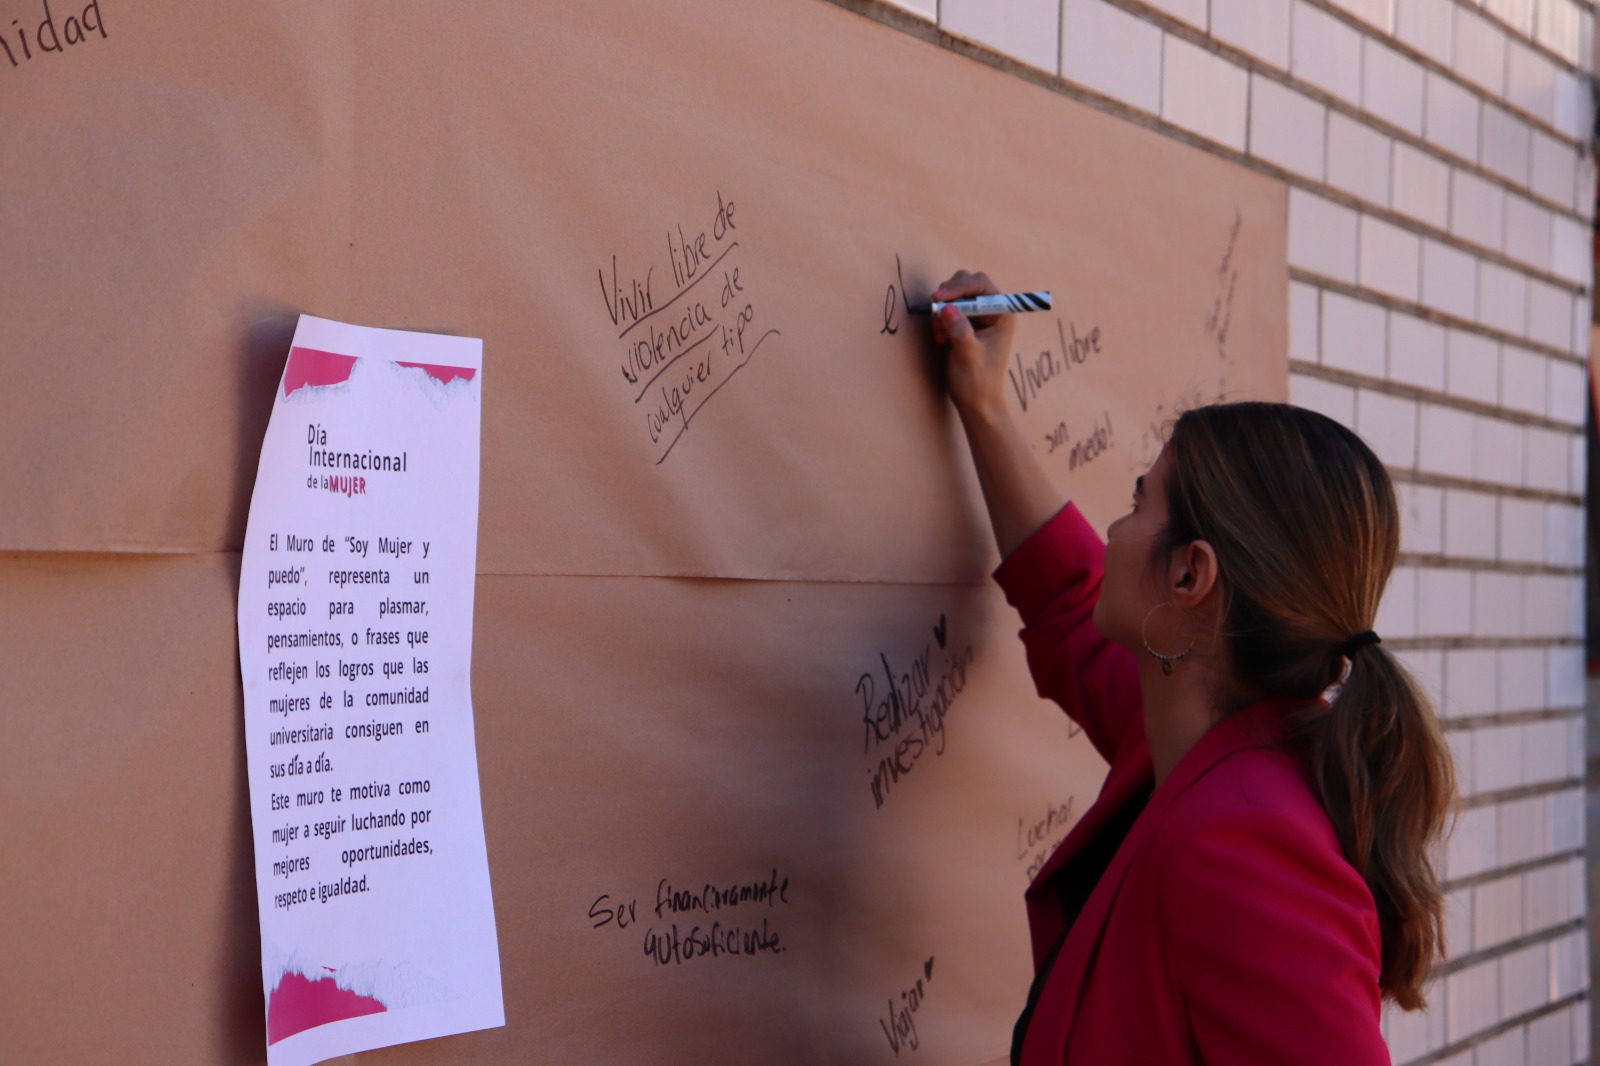 nidad
Vivir libre de
violencia de
cualquier tipo
el
Viva, libre
sin
miedo!
Día
Internacional
de la MUJER
El Muro de “Soy Mujer y
puedo”, representa un
espacio para plasmar,
pensamientos, o frases que
reflejen los logros que las
mujeres de la comunidad
universitaria consiguen en
sus día a día.
Este muro te motiva como
mujer a seguir luchando por
mejores oportunidades,
respeto e igualdad.
Realizar ♥
investigación
Luchar
Ser financieramente
autosuficiente.
Viajar ♥